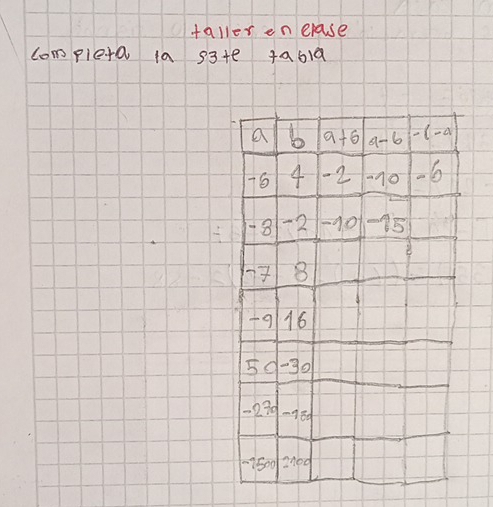 taller en clase
completa la s3te tabla
a b a+b a-b -(-a
-6 4 -2 -10 -6
-8 -2 -10 -15
-7 8
-9 16
50 -30
-270
-1500 2100